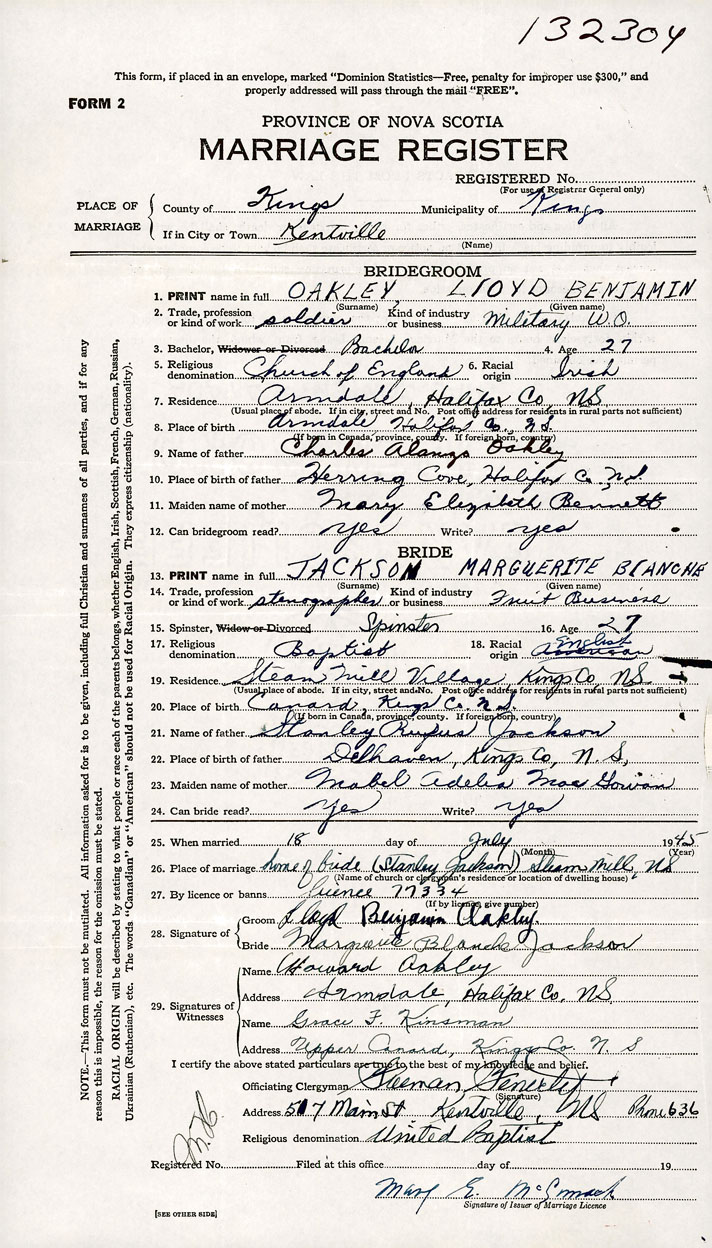 132304
This form, if placed in an envelope, marked "Dominion Statistics—Free, penalty for improper use $300," and
properly addressed will pass through the mail "FREE".
FORM 2
PROVINCE OF NOVA SCOTIA
MARRIAGE REGISTER
REGISTERED No.
(For use of Registrar General only)
PLACE OF MARRIAGE
County of Kings Municipality of Kings
If in City or Town Kentville
(Name)
BRIDEGROOM
1. PRINT name in full OAKLEY, LLOYD BENJAMIN
(Surname) (Given name)
2. Trade, profession or kind of work soldier Kind of industry or business Military W.O.
3. Bachelor, Widower or Divorced Bachelor 4. Age 27
5. Religious denomination Church of England 6. Racial origin Irish
7. Residence Armdale, Halifax Co, NS
(Usual place of abode. If in city, street and No. Post office address for residents in rural parts not sufficient)
8. Place of birth Armdale Halifax Co., N.S.
(If born in Canada, province, county. If foreign born, country)
9. Name of father Charles Alonzo Oakley
10. Place of birth of father Herring Cove, Halifax Co. N.S.
11. Maiden name of mother Mary Elizabeth Bennett
12. Can bridegroom read? yes Write? yes
BRIDE
13. PRINT name in full JACKSON MARGUERITE BLANCHE
(Surname) (Given name)
14. Trade, profession or kind of work stenographer Kind of industry or business Fruit Business
15. Spinster, Widow or Divorced Spinster 16. Age 27
17. Religious denomination Baptist 18. Racial origin English American
19. Residence Steam Mill Village, Kings Co, NS
(Usual place of abode. If in city, street and No. Post office address for residents in rural parts not sufficient)
20. Place of birth Canard, Kings Co. N.S.
(If born in Canada, province, county. If foreign born, country)
21. Name of father Stanley Rufus Jackson
22. Place of birth of father Delhaven, Kings Co, N.S,
23. Maiden name of mother Mabel Adelia MacGowan
24. Can bride read? Yes Write? Yes
25. When married 18 day of July 1945
(Month) (Year)
26. Place of marriage home of bride (Stanley Jackson) Steam Mill, NS
(Name of church or clergyman's residence or location of dwelling house)
27. By licence or banns licence 77334
(If by licence, give number)
28. Signature of
Groom Lloyd Benjamin Oakley
Bride Marguerite Blanche Jackson
29. Signatures of Witnesses
Name Howard Oakley
Address Armdale, Halifax Co. NS
Name Grace F. Kinsman
Address Upper Canard, Kings Co. N S
I certify the above stated particulars are true to the best of my knowledge and belief.
Officiating Clergyman Freeman Fenerty
(Signature)
Address 517 Main St Kentville, NS Phone 636
Religious denomination United Baptist
Registered No. Filed at this office day of 19
Mary E. McCormack
Signature of Issuer of Marriage Licence
[SEE OTHER SIDE]
NOTE.—This form must not be mutilated. All information asked for is to be given, including full Christian and surnames of all parties, and if for any
reason this is impossible, the reason for the omission must be stated.
RACIAL ORIGIN will be described by stating to what people or race each of the parents belongs, whether English, Irish, Scottish, French, German, Russian,
Ukrainian (Ruthenian), etc. The words "Canadian" or "American" should not be used for Racial Origin. They express citizenship (nationality).